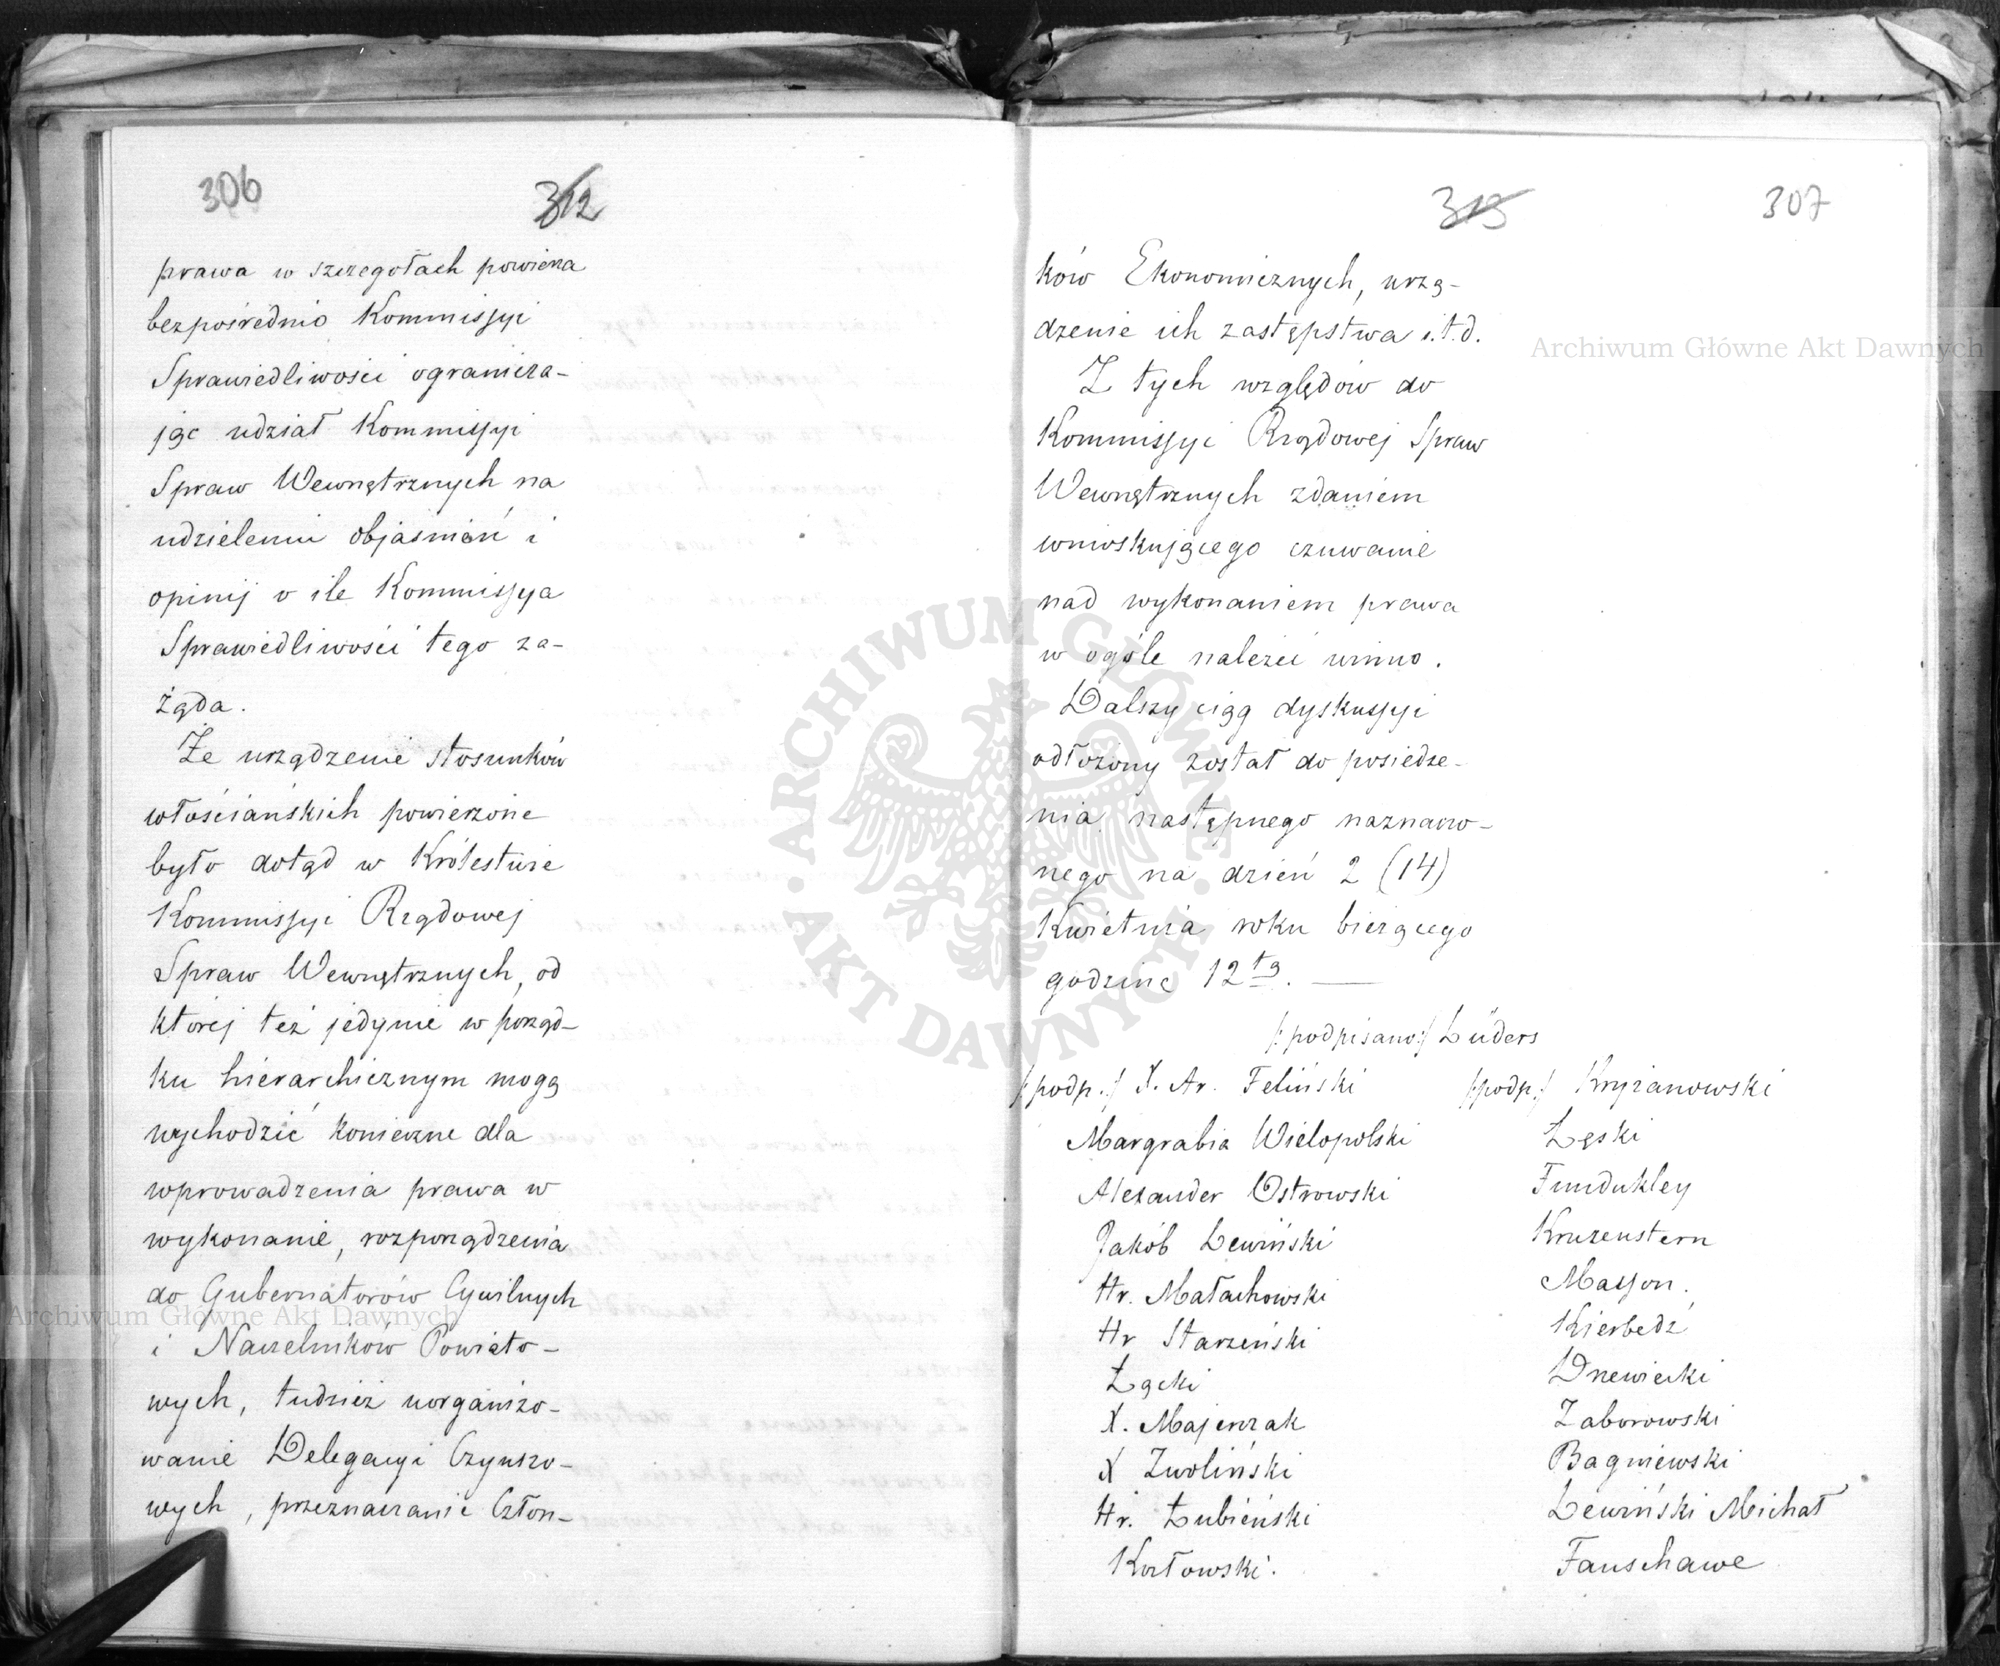 306
312
prawa w szczegółach powierza
bezpośrednio Kommissyi
Sprawiedliwości ogranicza-
jąc udział Kommissyi
Spraw Wewnętrznych na
udzieleniu objaśnień i
opinij o ile Kommissya
Sprawiedliwości tego za-
żąda.
Że urządzenie stosunków
włościańskich powierzone
było dotąd w Królestwie
Kommissyi Rządowej
Spraw Wewnętrznych, od
której też jedynie w porząd-
ku hierarchicznym mogą
wychodzić konieczne dla
wprowadzenia prawa w
wykonanie, rozporządzenia
do Gubernatorów Cywilnych
i Naczelników Powiato-
wych, tudzież uorganizo-
wanie Delegacyi Czynszo-
wych, przeznaczanie Człon-
313
307
ków Ekonomicznych, urzą-
dzenie ich zastępstwa i.t.d.
Z tych względów do
Kommissyi Rządowej Spraw
Wewnętrznych zdaniem
wnioskującego czuwanie
nad wykonaniem prawa
w ogóle należeć winno.
Dalszy ciąg dyskussyi
odłożony został do posiedze-
nia następnego naznaczo-
nego na dzień 2 (14)
Kwietnia roku bieżącego
godzinę 12tą. —
/:podpisano:/ Lüders
/:podp:/ X. Ar. Feliński
Margrabia Wielopolski
Alexander Ostrowski
Jakób Lewiński
Hr. Małachowski
Hr Starzeński
Łącki
X. Majerczak
X Zwoliński
Hr. Łubieński
Kozłowski.
/:podp:/ Kryżanowski
Łęski
Fundukley
Kruzenstern
Masson.
Kierbedź
Drzewiecki
Zaborowski
Bagniewski
Lewiński Michał
Fanschawe
Archiwum Główne Akt Dawnych
Archiwum Główne Akt Dawnych
ARCHIWUM GŁÓWNE · AKT DAWNYCH ·